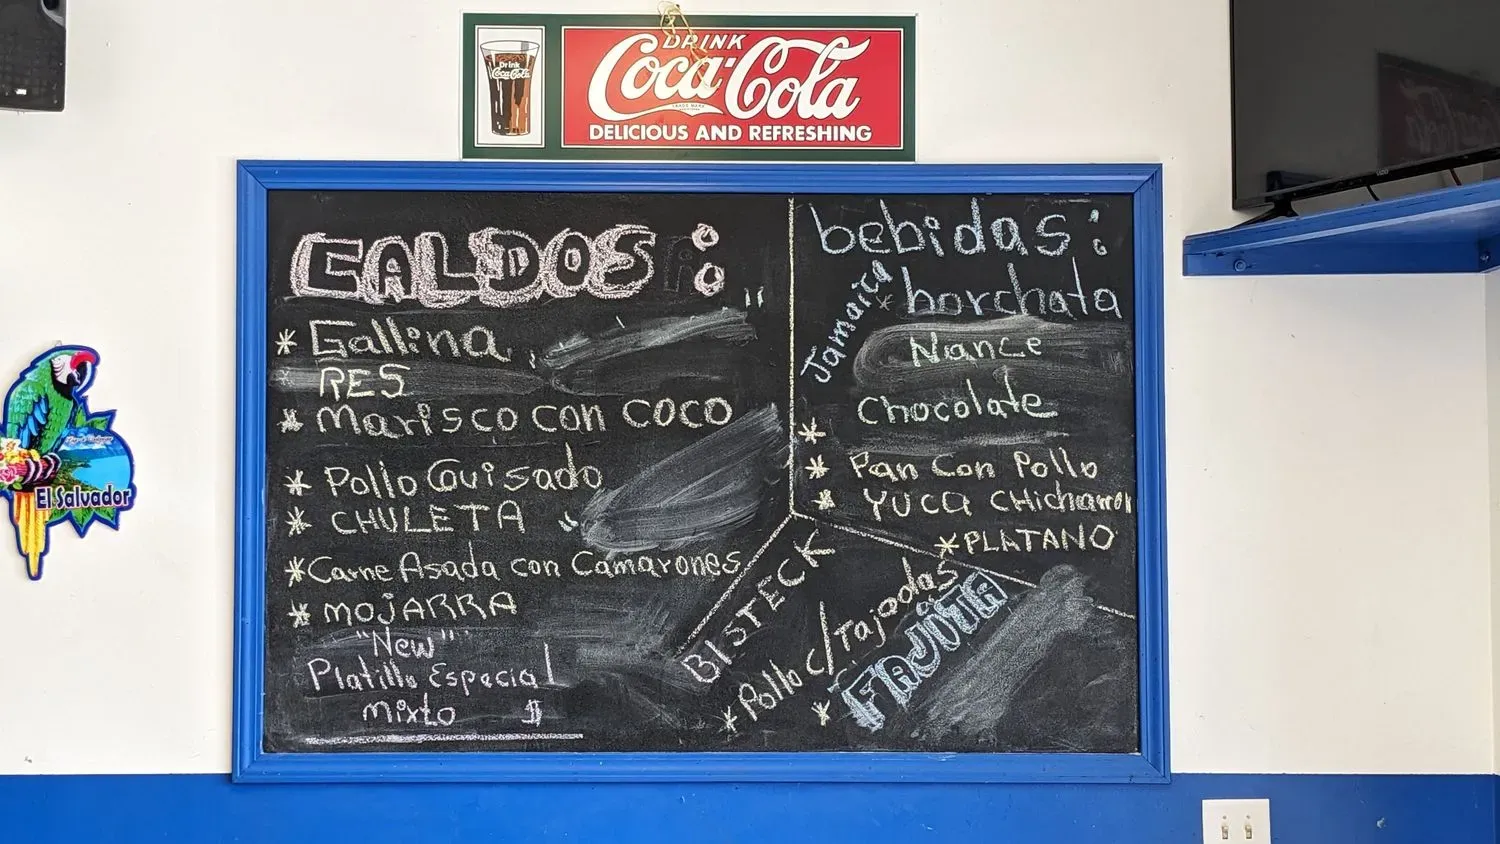 DRINK
Coca-Cola
TRADE MARK
DELICIOUS AND REFRESHING
Drink
Coca-Cola
CALDOS:
* Gallina
* RES
* Marisco con coco
* Pollo Guisado
* CHULETA
* Carne Asada con Camarones
* MOJARRA
"New"
Platillo Especial
mixto $
bebidas:
Jamaica
* horchata
Nance
Chocolate
*
* Pan Con Pollo
* YUCA CHicharron
* PLATANO
BISTECK
* Pollo c/Tajadas
*
El Salvador